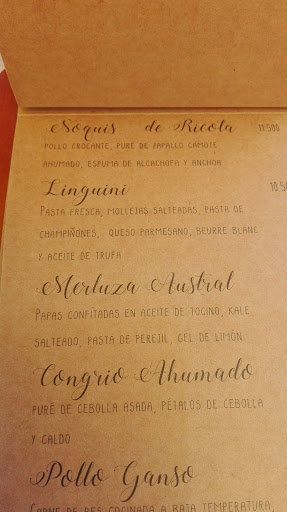 Ñoquis de Ricota 11.500
POLLO CROCANTE, PURÉ DE ZAPALLO CAMOTE
AHUMADO, ESPUMA DE ALCACHOFA Y ANCHOA
Linguini 10.5
PASTA FRESCA, MOLLEJAS SALTEADAS, PASTA DE
CHAMPIÑONES, QUESO PARMESANO, BEURRE BLANC
Y ACEITE DE TRUFA
Merluza Austral
PAPAS CONFITADAS EN ACEITE DE TOCINO, KALE
SALTEADO, PASTA DE PEREJIL, GEL DE LIMÓN.
Congrio Ahumado
PURÉ DE CEBOLLA ASADA, PÉTALOS DE CEBOLLA
Y CALDO
Pollo Ganso
CARNE DE RES COCINADA A BAJA TEMPERATURA,